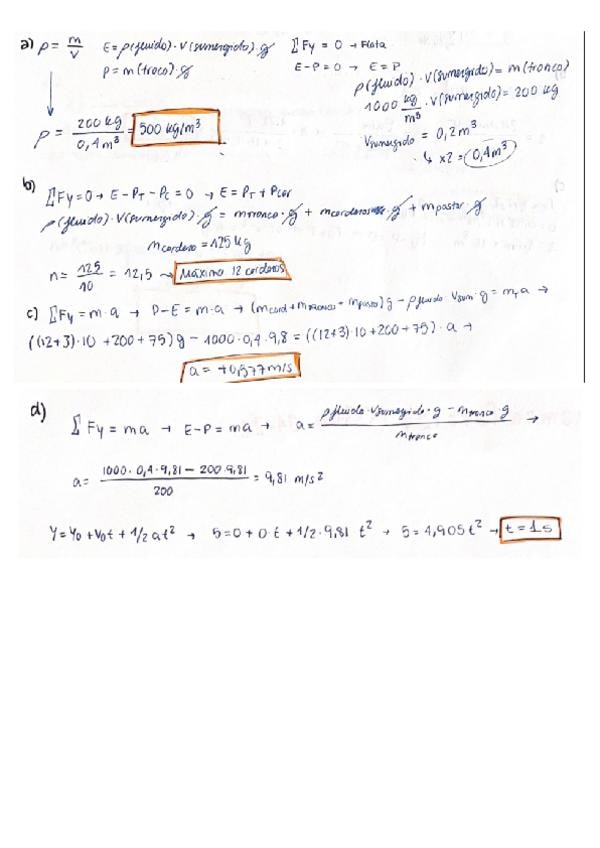 a) ρ = m/V   E = ρ(fluido) · V(sumergido) · g   ΣFy = 0 → Flota
P = m(troco) · g   E - P = 0 → E = P
ρ(fluido) · V(sumergido) = m(tronco)
1000 kg/m³ · V(sumergido) = 200 kg
ρ = 200 kg / 0,4 m³ = 500 kg/m³   Vsumergido = 0,2 m³
↳ x2 = 0,4 m³
b) ΣFy = 0 → E - PT - PC = 0 → E = PT + Pcor
ρ(fluido) · V(sumergido) · g = mtronco · g + mcorderos · g + mpastor · g
mcordero = 125 kg
n = 125/10 = 12,5 → Máximo 12 corderos
c) ΣFy = m · a → P - E = m · a → (mcord + mtronco + mpastor) g - ρfluido · Vsum · g = mT a →
((12+3) · 10 + 200 + 75) g - 1000 · 0,4 · 9,8 = ((12+3) · 10 + 200 + 75) · a →
a = +0,577 m/s
d) ΣFy = ma → E - P = ma → a = (ρfluido · Vsumergido · g - mtronco · g) / mtronco →
a = (1000 · 0,4 · 9,81 - 200 · 9,81) / 200 = 9,81 m/s²
Y = Y0 + V0t + 1/2 at² → 5 = 0 + 0 · t + 1/2 · 9,81 t² → 5 = 4,905 t² → t = 1 s